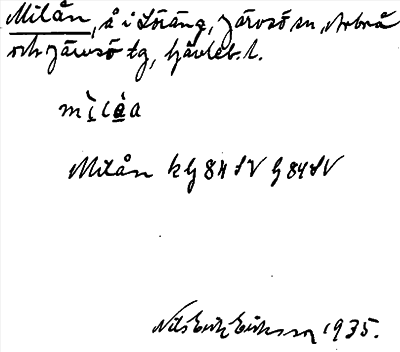 Milån, å i Löräng, Järvsö sn, Arbrå
och Järvsö tg, Gävleb. l.
mìlåa
Milån kG 84 SV G 84 SV
Nils Erik Eriksson 1935.